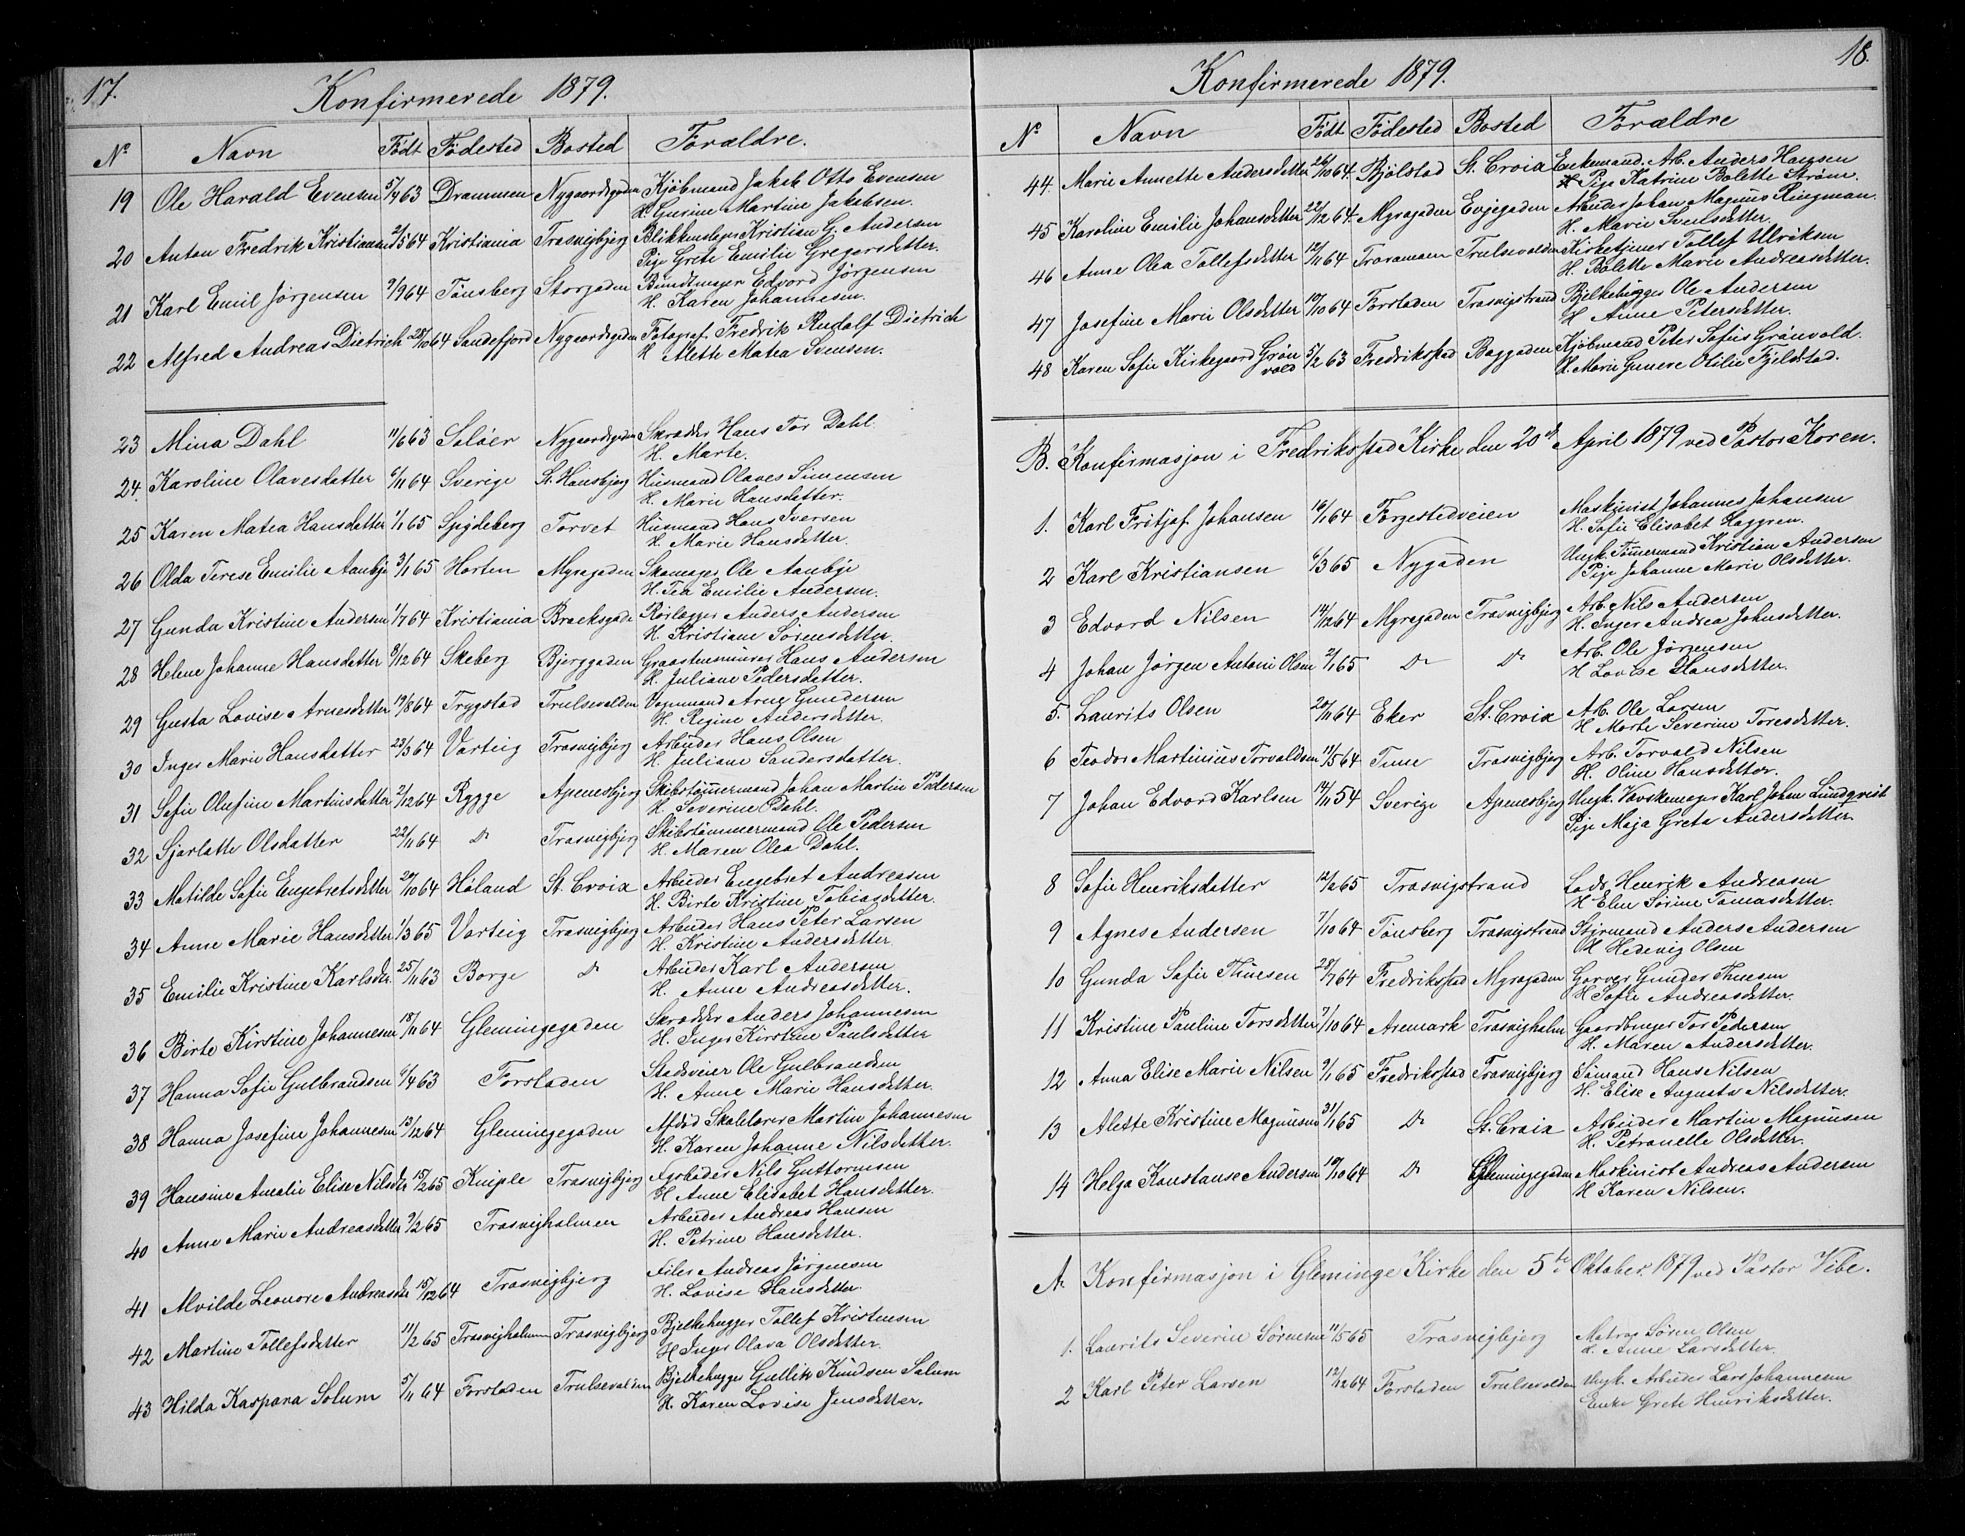 17.
Konfirmerede 1879.
No Navn Født Fødested Bosted Forældre.
19 Ole Harald Evensen 5/4 63 Drammen Nygaardsgaden Kjøbmand Jakob Otto Evensen
H. Gurine Martine Jakobsen.
20 Anton Fredrik Kristiansen 2/5 64 Kristiania Trosvigbjerg Blikkenslager Kristian G. Andersen
Pige Grete Emilie Gregersdatter.
21 Karl Emil Jørgensen 9/9 64 Tønsberg Storgaden Bundtmager Edvard Jørgensen
H. Karen Johannesen.
22 Alfred Andreas Dietrich 28/10 64 Sandefjord Nygaardsgaden Fotograf Fredrik Rudolf Dietrich
H. Alette Matea Svensen.
23 Mina Dahl 11/6 63 Soløer Nygaardsgaden Skrædder Hans Tor Dahl
H. Marte.
24. Karoline Olavesdatter 6/11 64 Sverige St. Hansbjerg Husmand Olaves Simensen
H. Marie Hansdatter.
25 Karen Matea Hansdatter 1/1 65 Spydeberg Torvet Husmand Hans Iversen
H. Marie Hansdatter.
26 Olda Terese Emilie Aanbje 3/1 65 Horten Myragaden Skomager Ole Aanbje
H. Tea Emilie Andersen.
27 Gunda Kristine Andersen 1/7 64 Kristiania Brocksgade Rørlægger Anders Andersen
H. Kristiane Sørensdatter.
28 Helene Johanne Hansdatter 8/12 64 Skeberg Bjerggaden Graastensmurer Hans Andersen
H. Juliane Pedersdatter.
29 Gusta Lovise Arnesdatter 19/8 64 Trygstad Trulsevolden Vognmand Arne Gundersen
H. Regine Andersdatter.
30 Inger Marie Hansdatter 23/3 64 Varteig Trosvigbjerg Arbeider Hans Olsen
H. Juliane Sandersdatter.
31 Sofie Olufine Martinsdatter 2/12 64 Rygge Apenesbjerg Skibstømmermand Johan Martin Pedersen
H. Severine Dahl.
32 Sjarlotte Olsdatter 22/11 64 Do Trosvigbjerg Skibstømmermand Ole Pedersen
H. Maren Olea Dahl.
33 Matilde Sofie Engebretsdatter 20/10 64 Høland St. Croix Arbeider Engebret Andreasen
H. Birte Kristine Tobiasdatter.
34 Anne Marie Hansdatter 1/3 65 Varteig Trosvigbjerg Arbeider Hans Peter Larsen
H. Kristine Andersdatter.
35 Emilie Kristine Karlsdtr 25/11 63 Borge Do Arbeider Karl Andersen
H. Anne Andreasdatter.
36 Birte Kirstine Johannesen 18/11 64 Glemingegaden Skrædder Anders Johannesen
H. Inger Kirstine Paulsdatter
37 Hanna Sofie Gulbrandsen 6/4 63 Forstaden Stadsveier Ole Gulbrandsen
H. Anne Marie Hansdatter.
38 Hanna Josefine Johannesen 13/12 64 Glemingegaden Afdød Skolelærer Martin Johannesen
H. Karen Johanne Nilsdatter.
39 Hansine Amalie Elise Nilsdtr 15/2 65 Kniple Trosvigbjerg Nils Guttormsen
H Anne Elisabet Hansdatter.
40 Anne Marie Andreasdatter 9/2 65 Trosvigholmen Arbeider Andreas Hansen
H. Petrine Hansdatter.
41 Alvilde Leonore Andreasdtr 15/12 64 Trosvigbjerg Filer Andreas Jørgensen
H. Lovise Hansdatter.
42 Martine Tollefsdatter 11/2 65 Trosvigholmen Trosvigbjerg Bjelkehugger Tollef Kristensen
H Inger Olava Olsdatter.
43 Hilda Kaspara Solum 5/11 64 Forstaden Trulsevolden Bjelkehugger Gullik Knudsen Solum
H. Karen Lovise Jensdatter.
18.
Konfirmerede 1879.
No Navn Født Fødested Bosted Forældre
44. Marie Annette Andersdatter 26/10 64. Bjølstad St. Croix Enkemand. Arb. Anders Hansen
Pige Katrine Bolette Strøm.
45 Karoline Emilie Johansdatter 22/12 64. Myragaden Evjegaden Arbeider Johan Magnus Ringman.
H. Marie Svensdatter.
46 Anne Olea Tollefsdatter 12/11 64 Traramoen Trulsevolden Kirketjener Tollef Ulriksen
H. Bolette Marie Andreasdatter.
47 Josefine Marie Olsdatter 10/10 64 Forstaden Trosvigstrand Bjelkehugger Ole Andersen
H Anne Petersdatter.
48 Karen Sofie Kirkegaard Grønvold 5/2 63 Fredrikstad Baggaden Kjøbmand Peter Sofus Grønvold.
H. Marie Gunere Otilie Fjeldstad.
B. Konfirmasjon i Fredrikstad Kirke den 20de April 1879 ved Pastor Koren.
1. Karl Fritjof Johansen 16/1 64 Torgestedveien Maskinist Johannes Johansen
H. Sofie Elisabet Haggren.
2 Karl Kristiansen 6/3 65 Nygaden Ungk. Tømmermand Kristian Andersen
Pige Johanne Marie Olsdatter.
3 Edvard Nilsen 14/12 64 Myragaden Trosvigbjerg Arb. Nils Andersen
H. Inger Andrea Johnsdatter.
4 Johan Jørgen Antoni Olsen 2/1 65 Do Do Arb. Ole Jørgensen
H Lovise Hansdatter.
5. Laurits Olsen 20/11 64 Eker St. Croix Arb. Ole Larsen
H Marte Severine Toresdatter.
6 Teodor Martinius Torvaldsen 11/5 64 Tune Trosvigbjerg Arb. Torvald Nilsen
H. Oline Hansdatter.
7 Johan Edvard Karlsen 14/11 54 Sverige Apenesbjerg Ungk. Vævskemager Karl Johan Lundqvist
Pige Maja Greta Andersdatter.
8 Sofie Henriksdatter 12/2 65 Trosvigstrand Lods. Henrik Andreasen
H Elen Sørine Tomasdatter.
9 Agnes Andersen 7/10 64 Tønsberg Trosvigstrand Styrmand Anders Andersen
H Hedevig Olsen
10 Gunda Sofie Thuesen 28/7 64 Fredrikstad Myragaden Garver Gunder Thuesen
H Sofie Andreasdatter.
11 Kristine Pauline Torsdatter 7/10 64 Aremark Trosvigholm Gaardbruger Tor Pedersen
H. Maren Andersdatter.
12 Anna Elise Marie Nilsen 9/1 65 Fredrikstad Trosvigbjerg Sømand Hans Nilsen
H. Elise Augusta Nilsdatter.
13 Alette Kristine Magnusen 31/1 65 Do St. Croix Arbeider Martin Magnusen
H. Petronelle Olsdatter.
14 Helga Konstanse Andersen 19/10 64 Do Glemingegaden Maskinist Andreas Andersen
H Karen Nilsen.
A. Konfirmasjon i Gleminge Kirke den 5te Oktober. 1879 ved Pastor Vibe.
1. Laurits Severin Sørensen 11/5 65 Trosvigbjerg Matros Søren Olsen
H. Anne Larsdatter.
2 Karl Peter Larsen 12/12 64 Forstaden Trulsevolden Ungk. Arbeider Lars Johannesen
Enke Grete Henriksdatter.